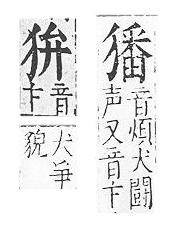 㺕
音煩犬闘
声又音卞
音
卞
犬爭
貌